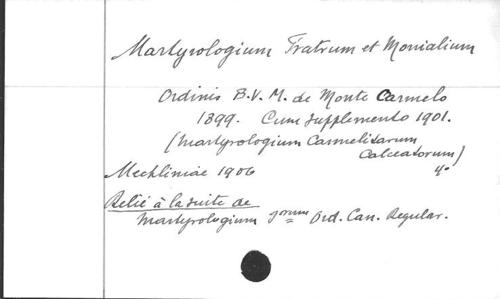 Martyrologium Fratrum et Monialium
Ordinis B.V.M. de Monte Carmelo
1899. Cum supplemento 1901.
(Martyrologium Carmelitarum
Calceatorum)
Mechliniae 1906 4°
Relié à la suite de
Martyrologium Ord. Can. Regular.